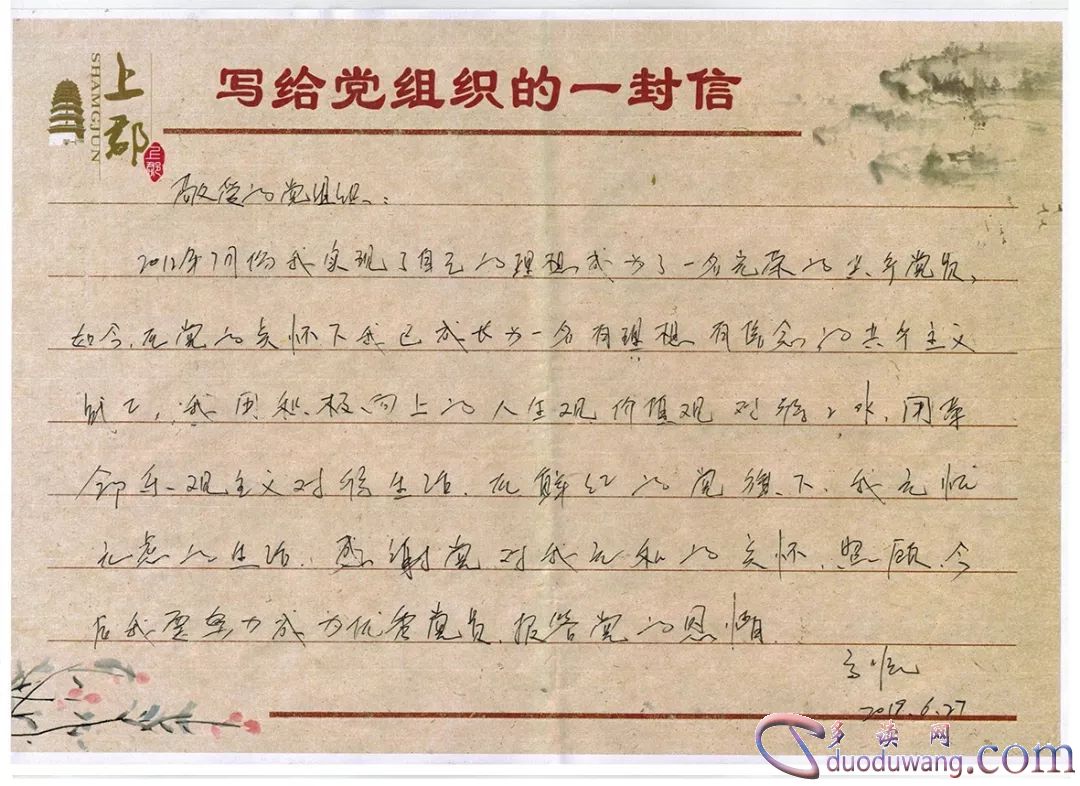 写给党组织的一封信
上郡
SHAMGJUN
上郡
敬爱的党组织:
2012年7月份我实现了自己的理想成为了一名光荣的共产党员,
如今,在党的关怀下我已成长为一名有理想有信念的共产主义
战士,我用积极向上的人生观价值观对待工作,用革
命乐观主义对待生活.在鲜红的党旗下,我无忧
无虑的生活.感谢党对我无私的关怀.照顾.今
后我要努力成为优秀党员.报答党的恩情.
2018.6.27
多读网
duoduwang.com